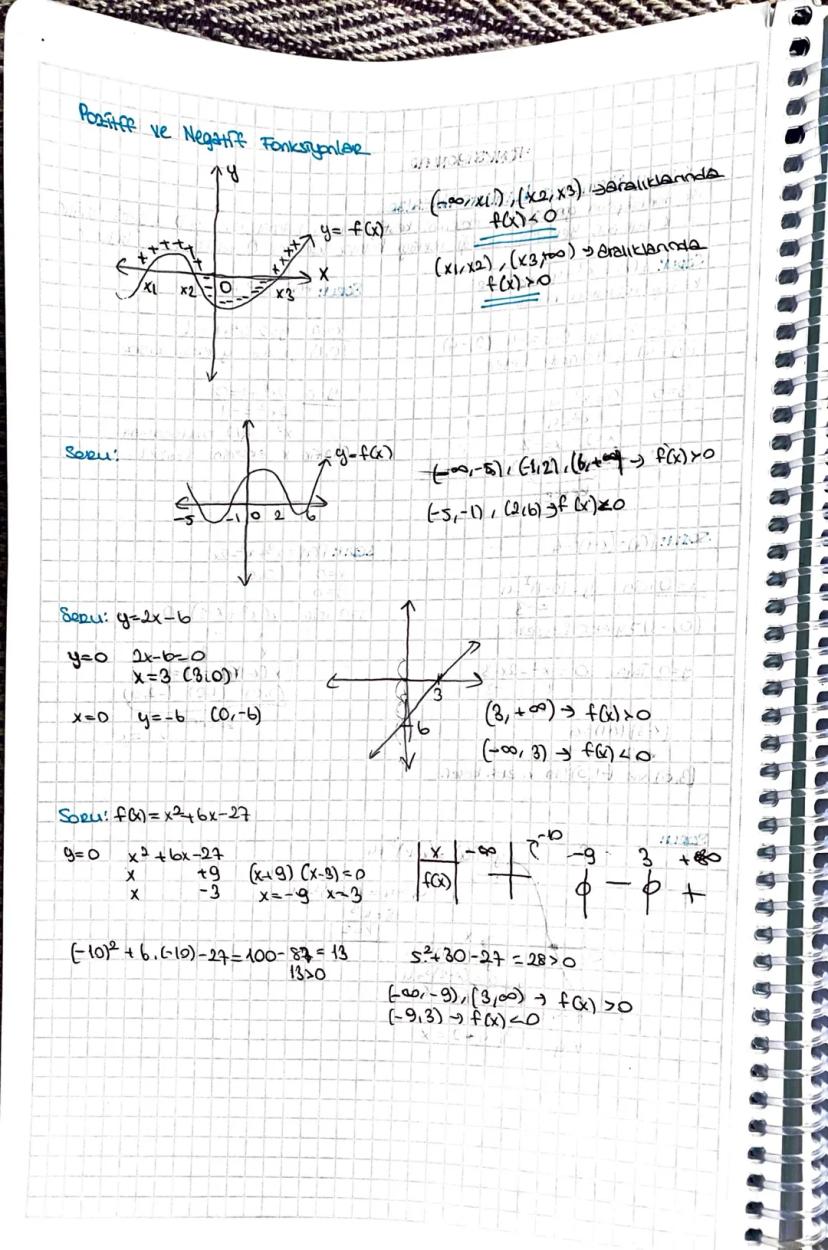 Pozitif ve Negatif Fonksiyonlar
y
(-∞, x1), (x2, x3) → aralıklarında
f(x) < 0
y = f(x)
+ + + + + +
+ + + +
x
(x1, x2), (x3, ∞) → aralıklarında
f(x) > 0
x1 x2 0 x3
Soru:
y=f(x)
(-∞, -5), (-1, 2), (6, +∞) → f(x) > 0
-5 -1 0 2 6
(-5, -1), (2, 6) → f(x) < 0
Soru: y=2x-6
y=0 2x-6=0
x=3 (3,0)
3
x=0 y=-6 (0,-6)
(3, +∞) → f(x) > 0
-6
(-∞, 3) → f(x) < 0
Soru: f(x) = x²+6x-27
y=0 x²+6x-27
x +9 (x+9) (x-3) = 0
x -3 x=-9 x=3
x -∞ -10 -9 3 +∞
f(x) + - +
(-10)² + 6.(-10) - 27 = 100 - 87 = 13
13>0
5²+30-27 = 28>0
(-∞, -9), (3, ∞) → f(x) > 0
(-9, 3) → f(x) < 0